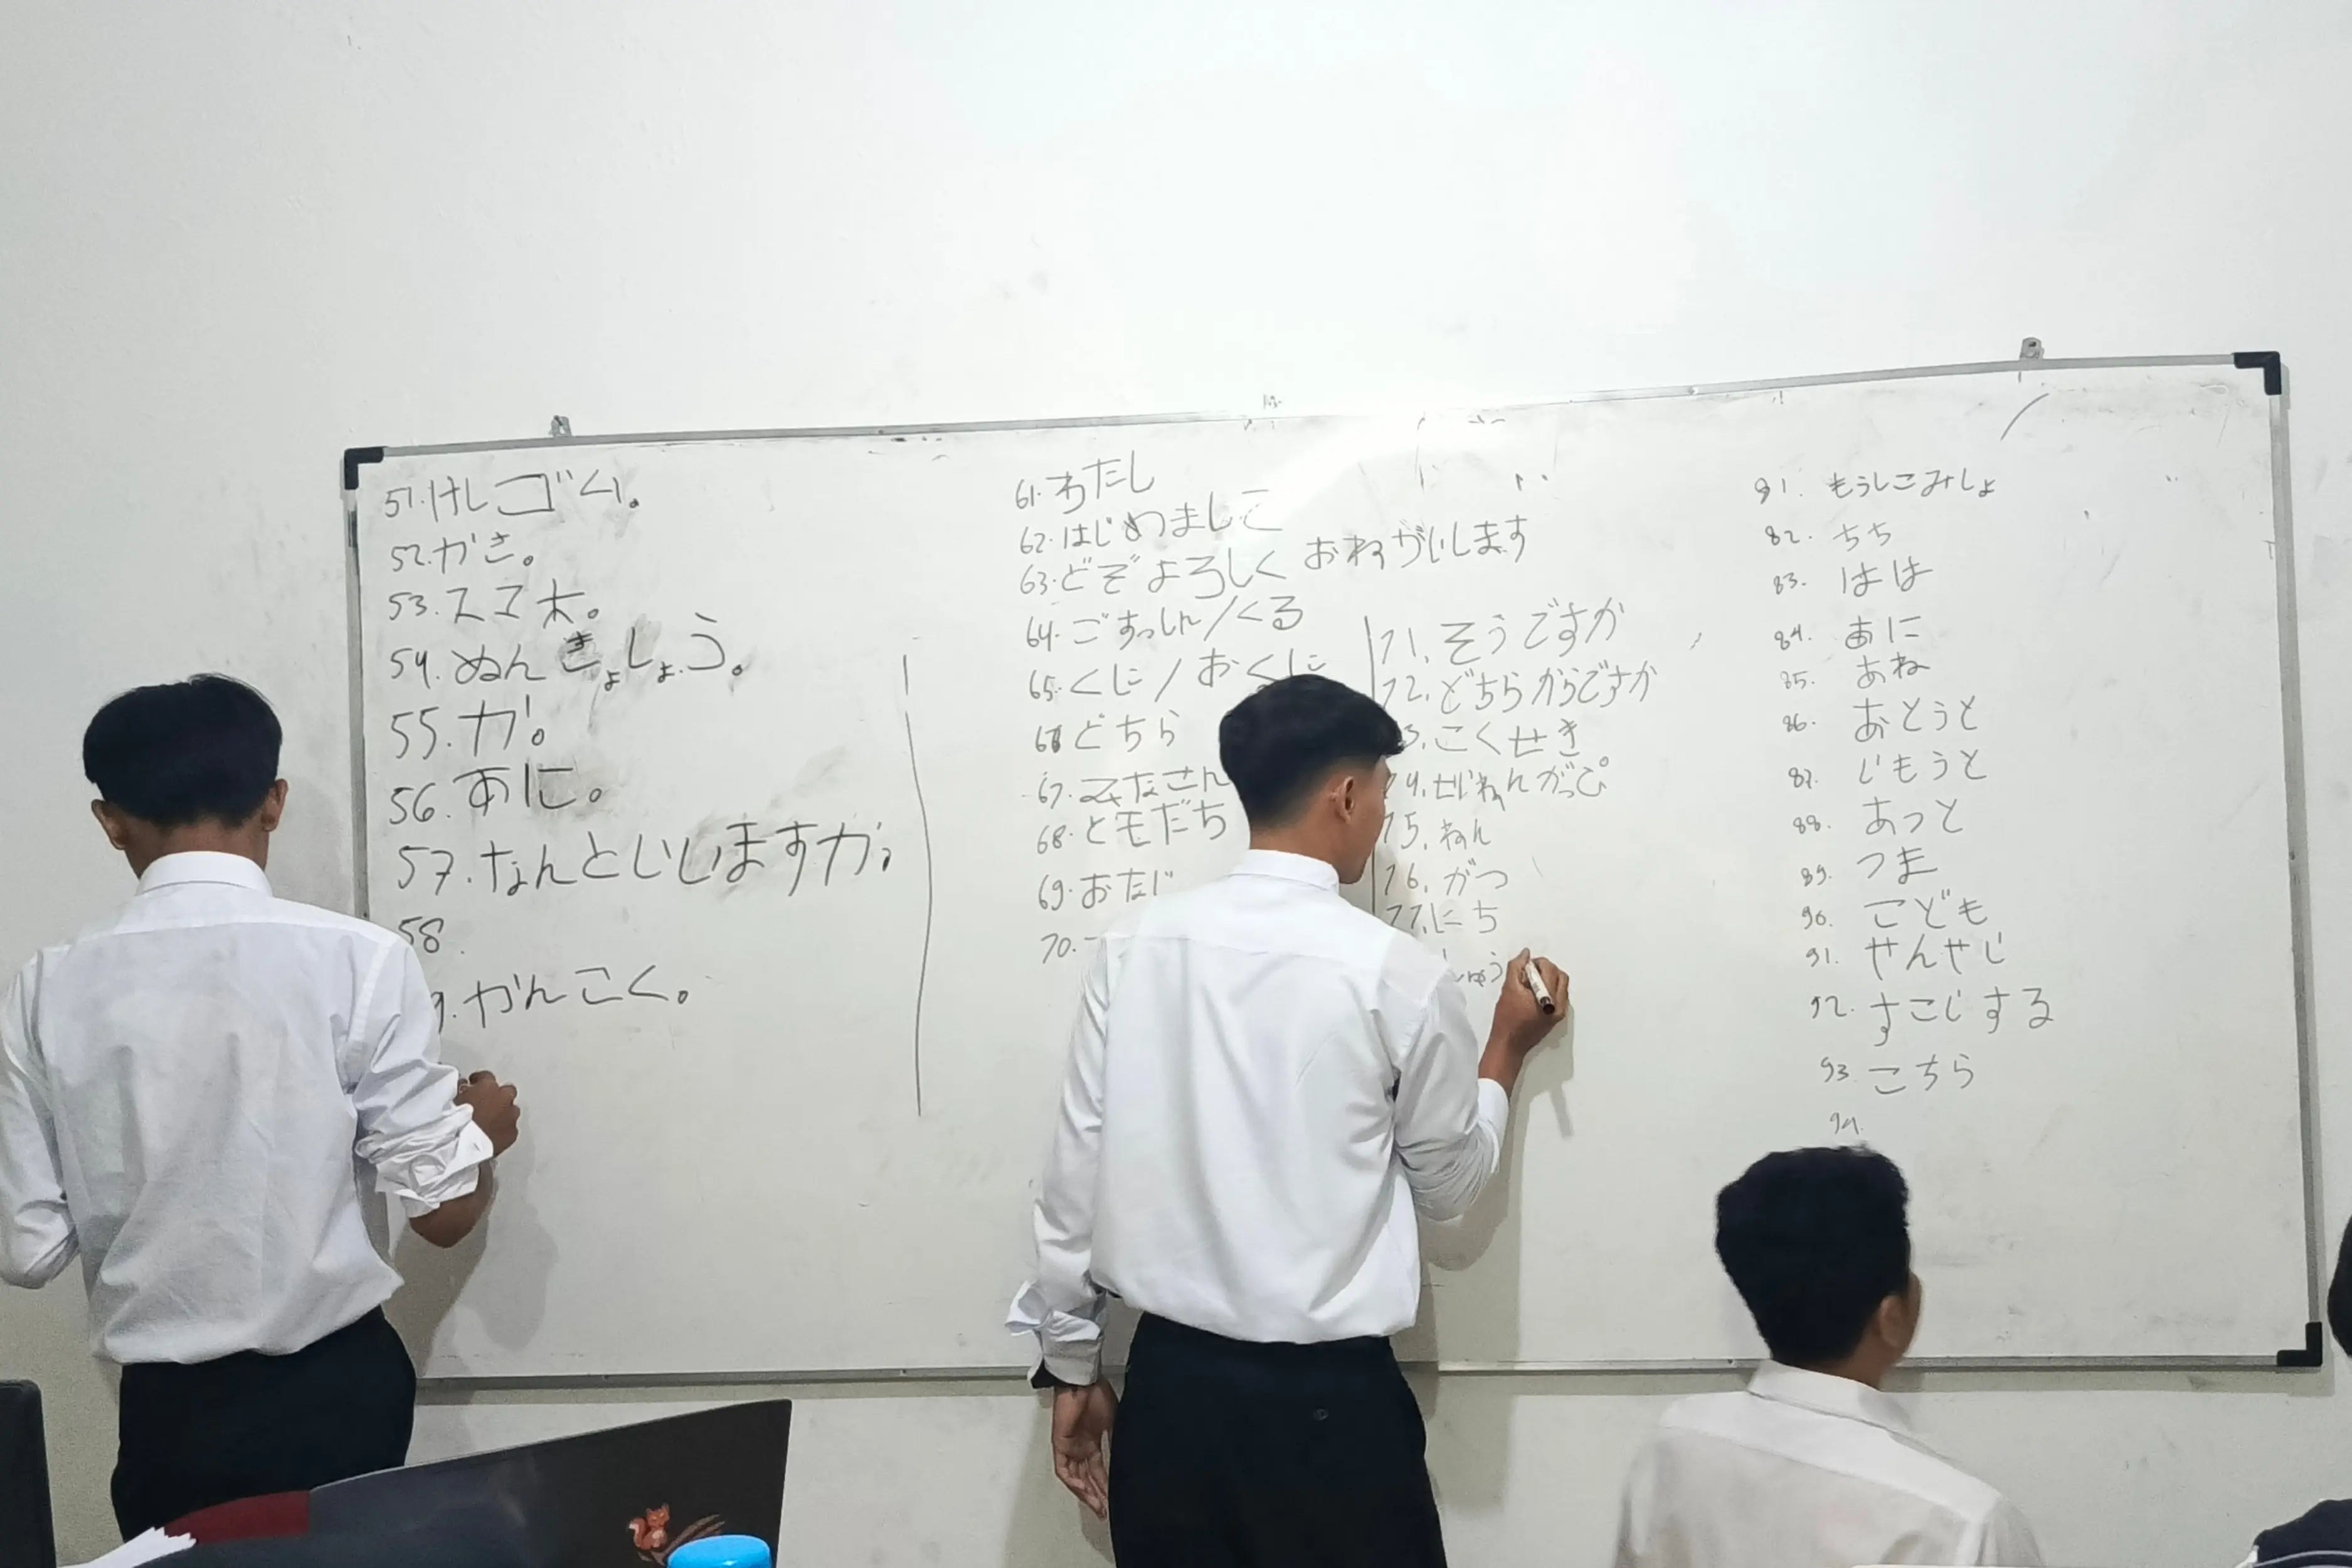 51. けしゴム。
52. かさ。
53. スマホ。
54. ぬんきょしょう。
55. か。
56. あに。
57. なんといいますか。
58.
9. かんこく。
61. わたし
62. はじめましこ
63. どぞよろしく おねがいします
64. ごすっしん/くる
65. くに/おくに
66 どちら
67. みなさん
68. ともだち
69. おなじ
70.
71. そうですか
72. どちらからですか
3. こくせき
74. せいねんがっぴ
75. ねん
76. がつ
77. にち
しゅう
81. もうしこみしょ
82. ちち
83. はは
84. あに
85. あね
86. おとうと
87. いもうと
88. あっと
89. つま
90. こども
91. せんせい
92. すこじする
93. こちら
94.